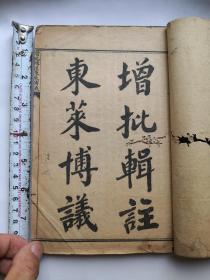 增批輯註
東萊博議